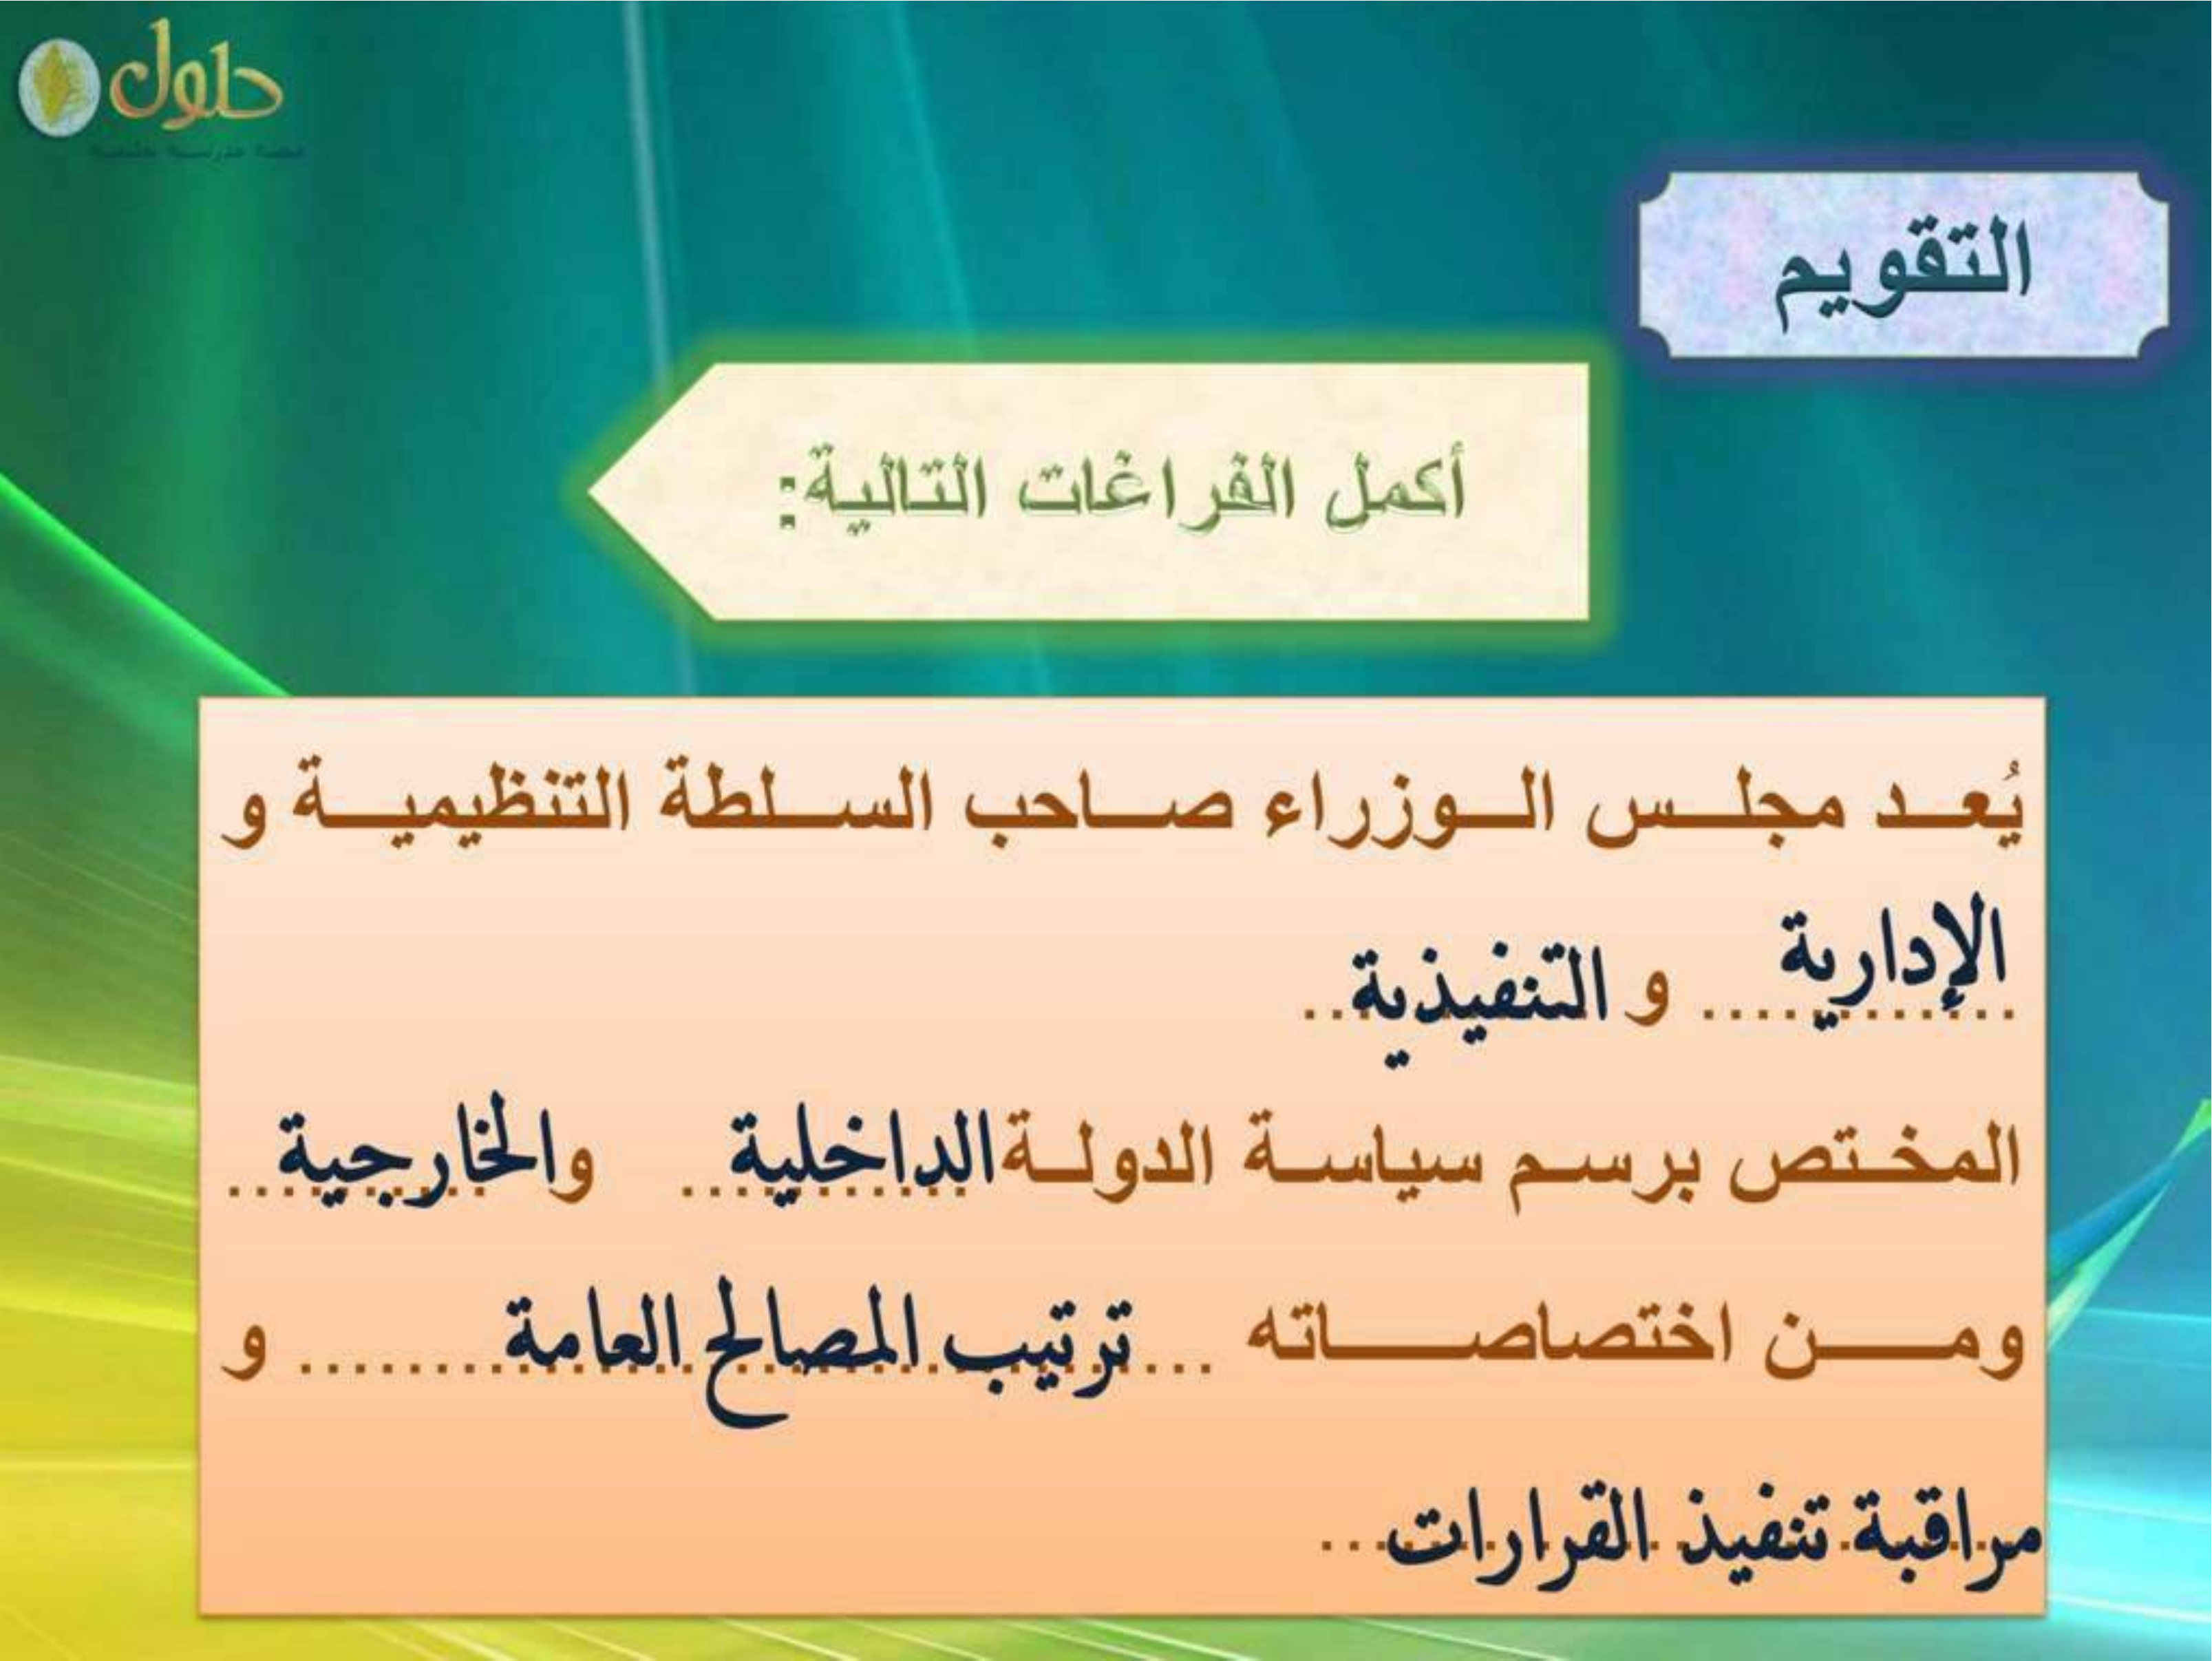 حلول
التقويم
أكمل الفراغات التالية:
يُعد مجلس الوزراء صاحب السلطة التنظيمية و
الإدارية ............ و التنفيذية ..
المختص برسم سياسة الدولة الداخلية .. والخارجية ..
ومن اختصاصاته ... ترتيب المصالح العامة ........ و
مراقبة تنفيذ القرارات ...